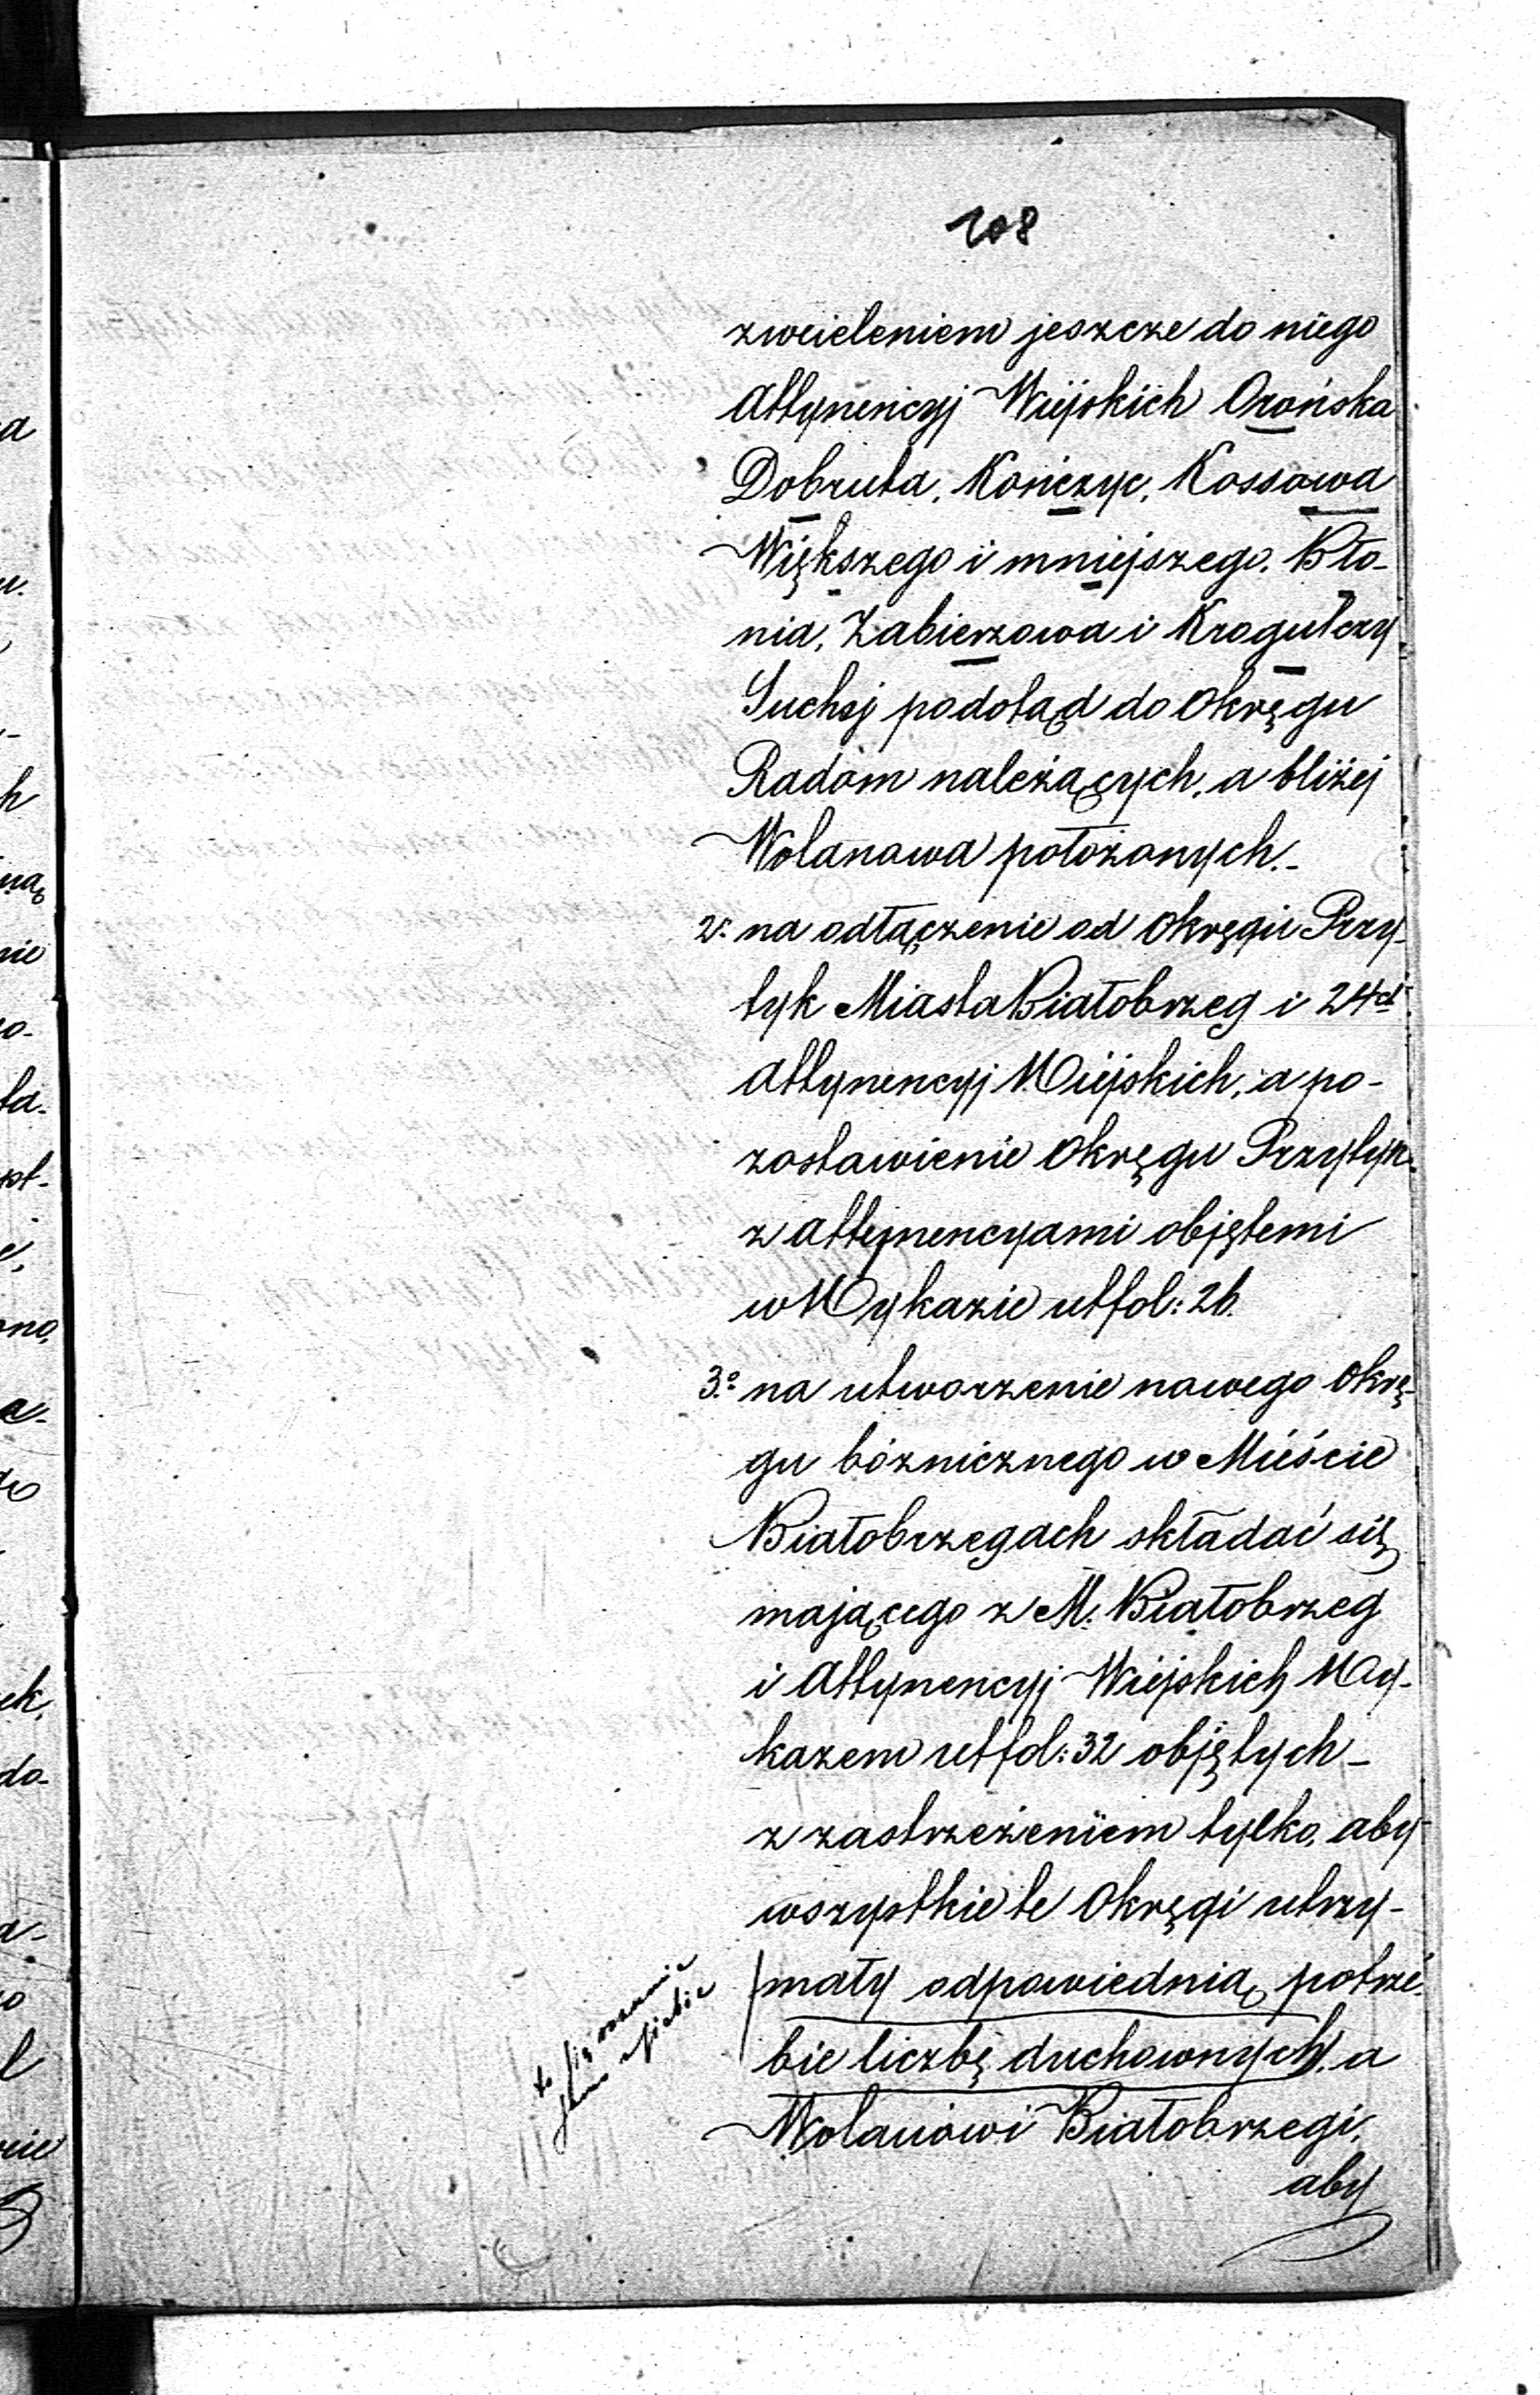 108
zwcieleniem jeszcze do niego
Attynencyj Wiejskich Orońska
Dobruta, Kończyc, Kossowa
Większego i mniejszego, Bło-
nia, Zabierzowa i Krogulczy
Suchej podotąd do Okręgu
Radom należących, a bliżej
Wolanowa położonych.-
2º na odłączenie od Okręgu Przy-
tyk Miasta Białobrzeg i 24ch
Attynencyj Wiejskich, a po-
zostawienie Okręgu Przytyk
z attynencyami objętemi
w Wykazie utfol: 26.
3º na utworzenie nowego Okrę-
gu bóżnicznego w Mieście
Białobrzegach składać się
mającego z M. Białobrzeg
i Attynencyj Wiejskich Wy-
kazem utfol: 32 objętych -
z zastrzeżeniem tylko, aby
wszystkie te Okręgi utrzy-
mały odpowiednią potrze-
bie liczbę duchownych, a
Wolanów i Białobrzegi,
aby
to się rozumie
siebie